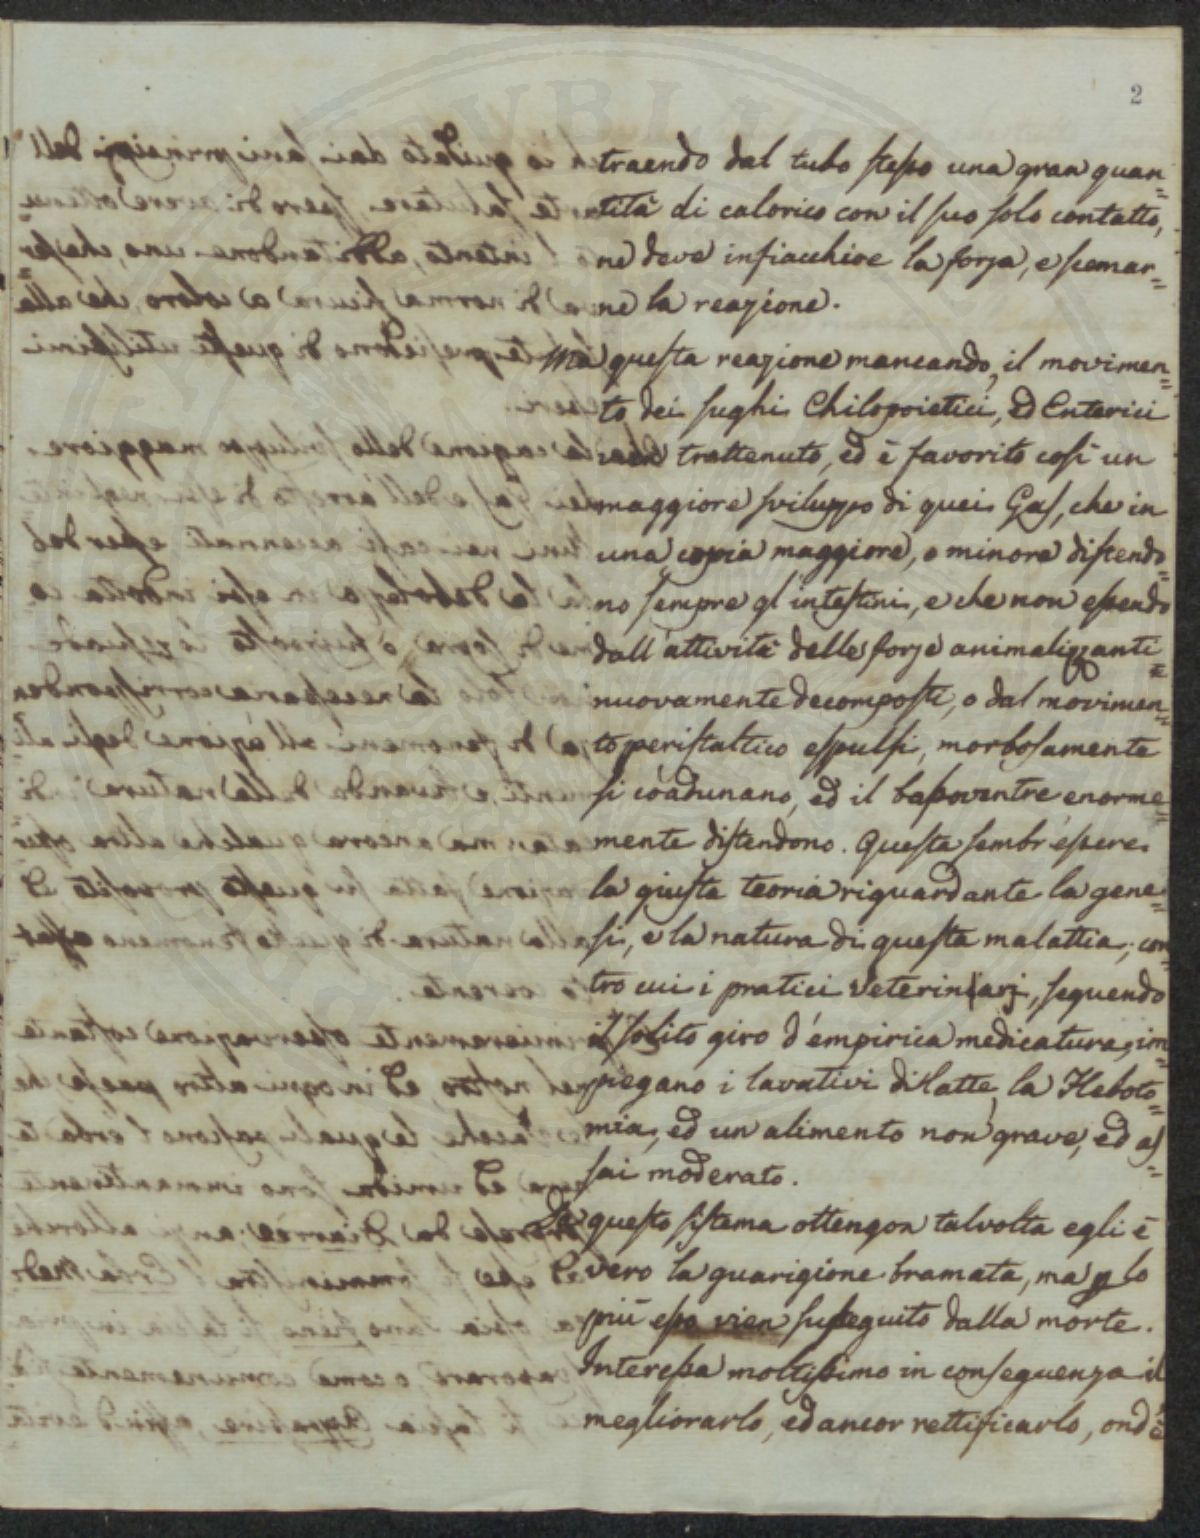 2
traendo dal tubo stesso una gran quan=
tità di calorico con il suo solo contatto,
ne deve infiacchire la forza, e scemar=
ne la reazione.
Ma questa reazione mancando, il movimen=
to dei sughi Chilopoietici, ed Enterici
trattenuto, ed è favorito così un
maggiore sviluppo di quei Gas, che in
una copia maggiore, o minore distendo=
no sempre gl'intestini, e che non essendo
dall'attività delle forze animalizzanti=
nuovamente decomposti, o dal movimen=
to peristaltico espulsi, morbosamente
si coadunano, ed il bassoventre enorme=
mente distendono. Questa sembr'essere
la giusta teoria riguardante la gene=
si, e la natura di questa malattia, con=
tro cui i pratici Veterinarj, seguendo
il solito giro d'empirica medicatura, im=
piegano i lavativi di latte, la Fleboto=
mia, ed un alimento non grave, ed as=
sai moderato.
Da questo sistema ottengon talvolta egli è
vero la guarigione bramata, ma p lo
più esso vien susseguito dalla morte.
Interessa moltissimo in conseguenza il
megliorarlo, ed ancor rettificarlo, ond'è